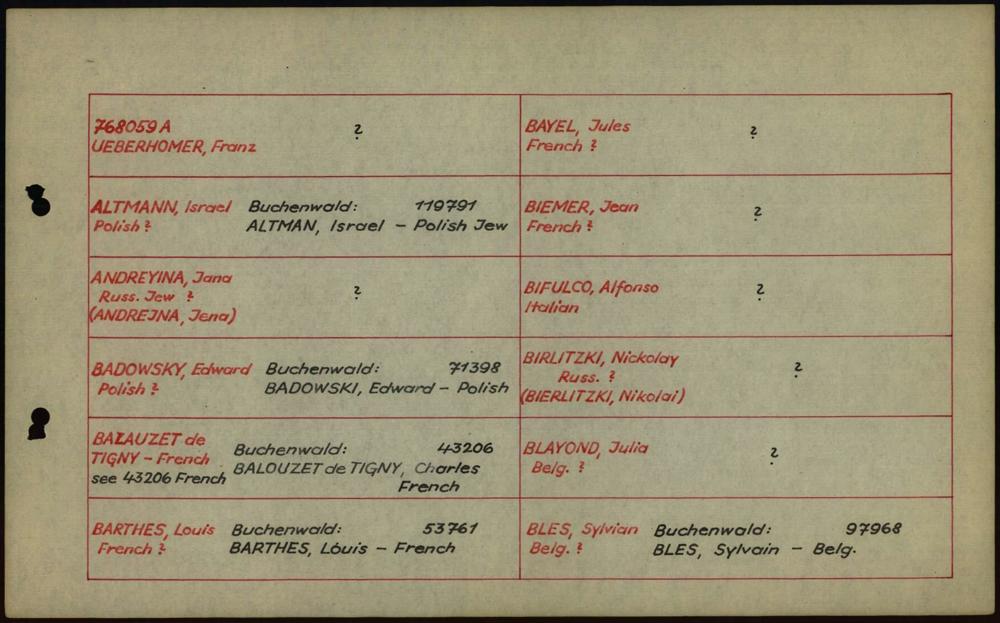 768059 A
UEBERHOMER, Franz ?
ALTMANN, Israel Buchenwald: 119791
Polish ? ALTMAN, Israel – Polish Jew
ANDREYINA, Jana
Russ. Jew ? ?
(ANDREJNA, Jena)
BADOWSKY, Edward Buchenwald: 71398
Polish ? BADOWSKI, Edward – Polish
BALAUZET de
TIGNY – French Buchenwald: 43206
see 43206 French BALOUZET de TIGNY, Charles
French
BARTHES, Louis Buchenwald: 53761
French ? BARTHES, Lóuis – French
BAYEL, Jules ?
French ?
BIEMER, Jean ?
French ?
BIFULCO, Alfonso ?
Italian
BIRLITZKI, Nickolay
Russ. ? ?
(BIERLITZKI, Nikolai)
BLAYOND, Julia ?
Belg. ?
BLES, Sylvian Buchenwald: 97968
Belg. ? BLES, Sylvain – Belg.